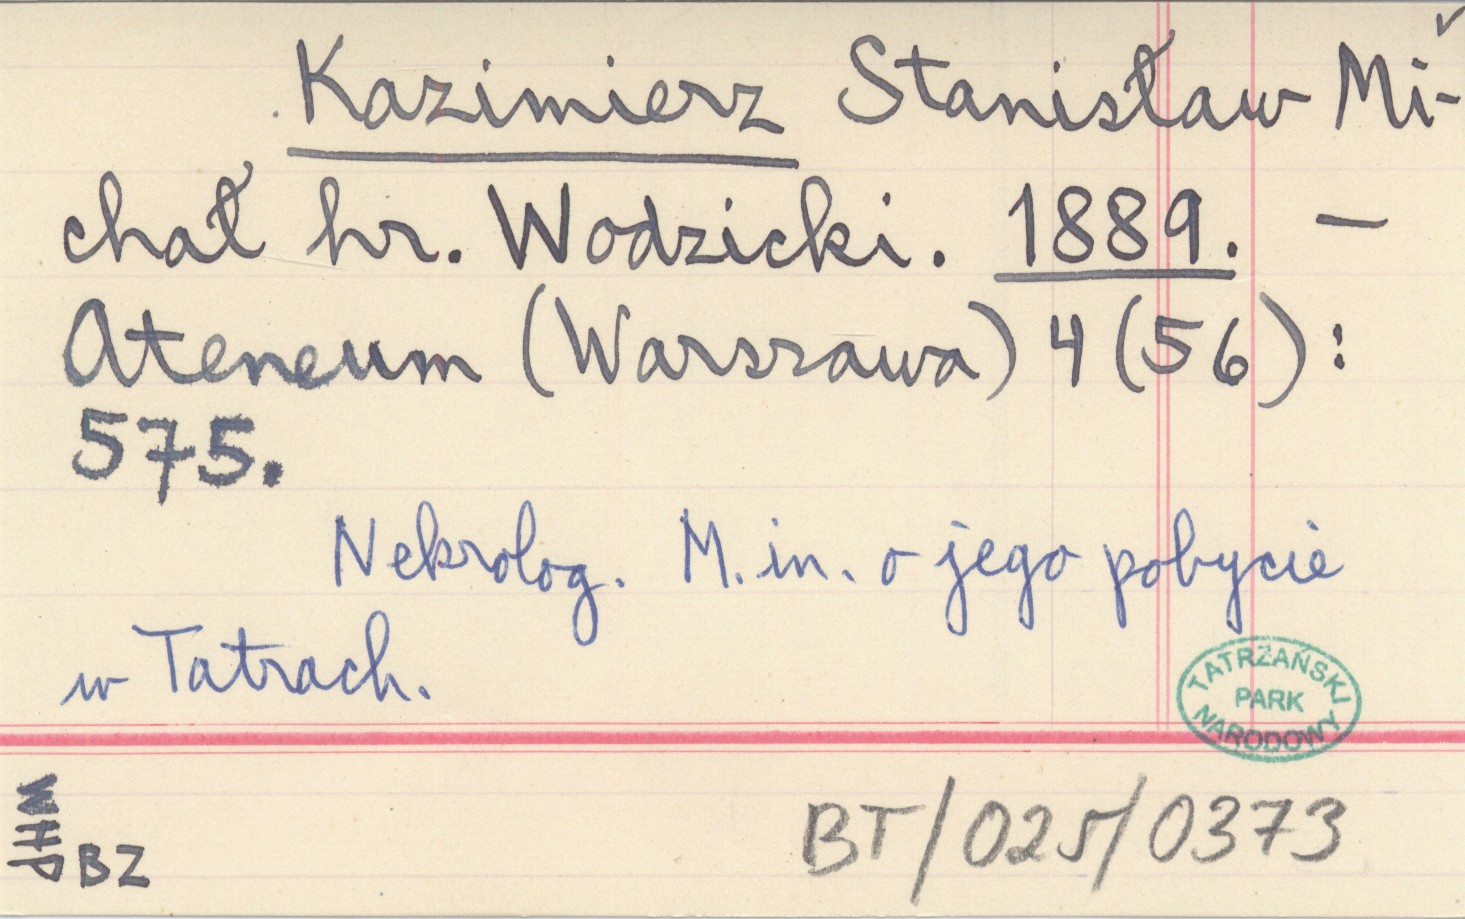 Kazimierz Stanisław Mi-
chał hr. Wodzicki. 1889. —
Ateneum (Warszawa) 4 (56):
575.
Nekrolog. M. in. o jego pobycie
w Tatrach.
TATRZAŃSKI
PARK
NARODOWY
WHP
BZ
BT/025/0373